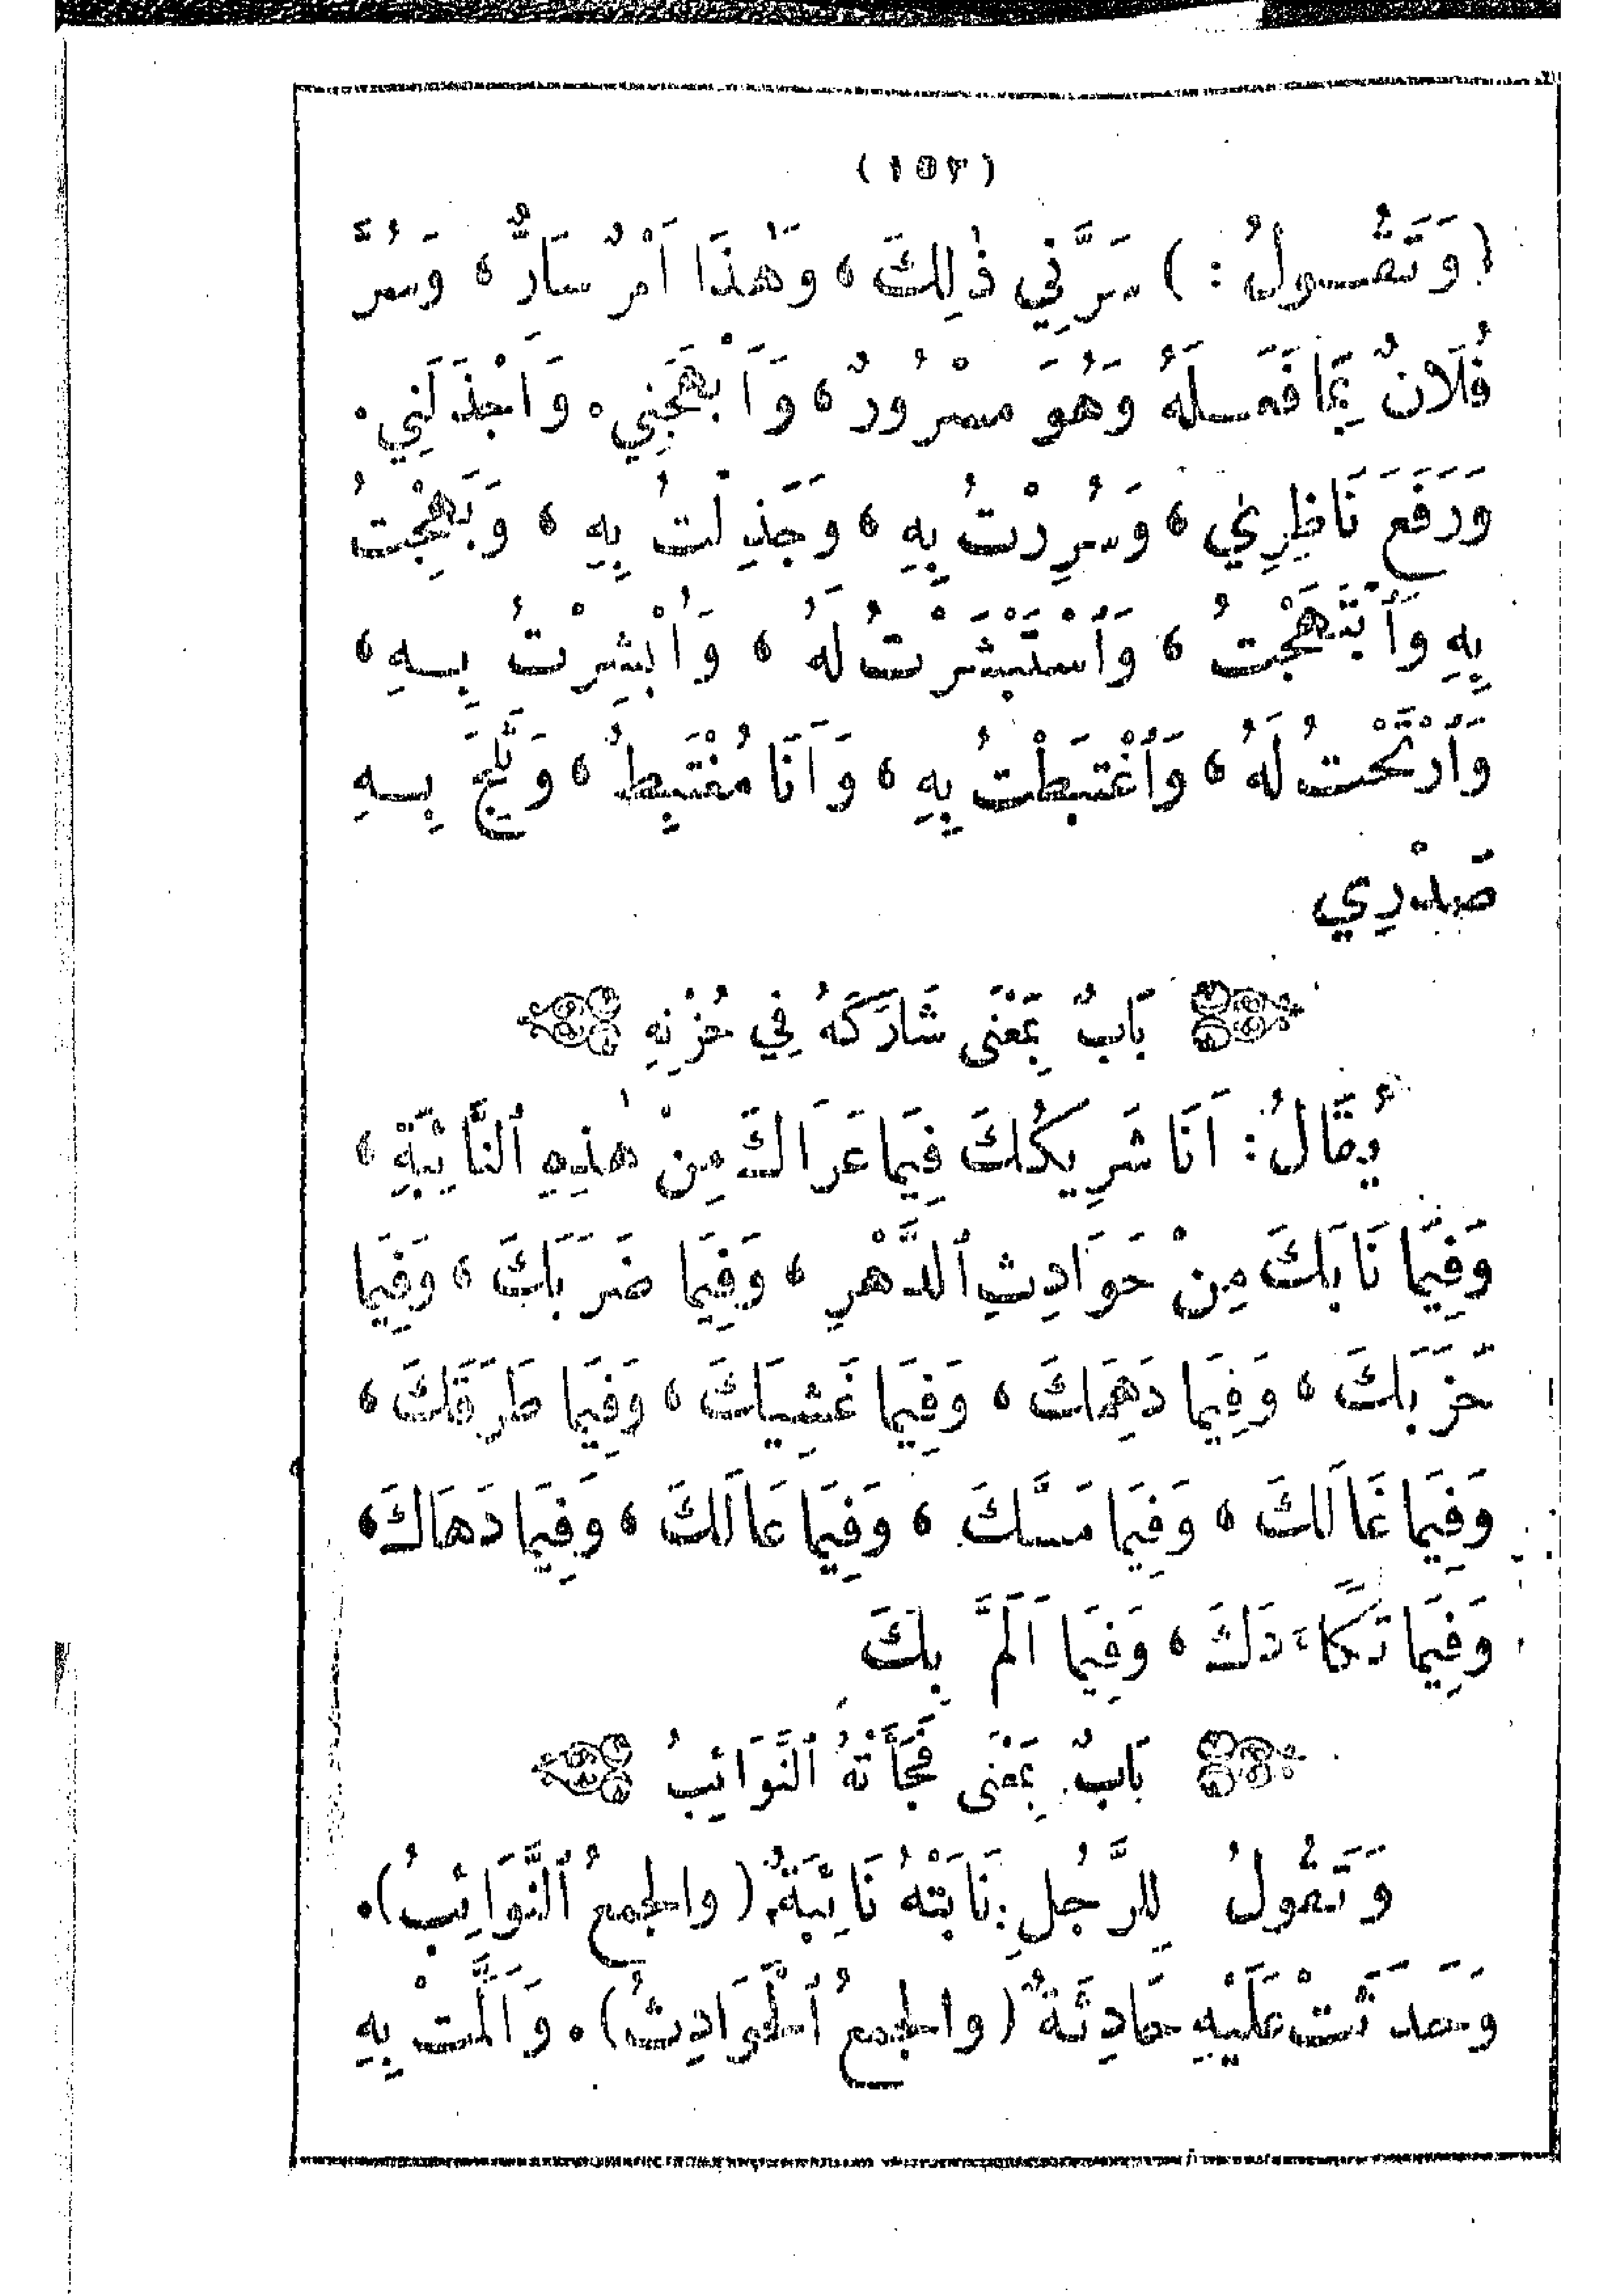 (١٥٣)
(وَتَقُولُ:) سَرَّنِي ذٰلِكَ، وَهٰذَا اَمْرٌ سَارٌّ، وَسُرَّ
فُلَانٌ بِمَا فَعَلَهُ وَهُوَ مَسْرُورٌ، وَاَبْهَجَنِي. وَاَجْذَلَنِي.
وَرَفَعَ نَاظِرِي، وَسُرِرْتُ بِهِ، وَجَذِلْتُ بِهِ، وَبَهِجْتُ
بِهِ وَٱبْتَهَجْتُ، وَٱسْتَبْشَرْتُ لَهُ، وَاُبْشِرْتُ بِهِ،
وَٱرْتَحْتُ لَهُ، وَٱغْتَبَطْتُ بِهِ، وَاَنَا مُغْتَبِطٌ، وَثَلِجَ بِهِ
صَدْرِي
بَابٌ بِمَعْنَى شَارَكَهُ فِي حُزْنِهِ
يُقَالُ: اَنَا شَرِيكُكَ فِيمَا عَرَاكَ مِنْ هٰذِهِ ٱلنَّائِبَةِ،
وَفِيمَا نَابَكَ مِنْ حَوَادِثِ ٱلدَّهْرِ، وَفِيمَا ضَرَبَكَ، وَفِيمَا
حَزَبَكَ، وَفِيمَا دَهِمَكَ، وَفِيمَا غَشِيَكَ، وَفِيمَا طَرَقَكَ،
وَفِيمَا غَالَكَ، وَفِيمَا مَسَّكَ، وَفِيمَا عَالَكَ، وَفِيمَا دَهَاكَ،
وَفِيمَا تَكَاءَدَكَ، وَفِيمَا اَلَمَّ بِكَ
بَابٌ بِمَعْنَى فَجَأَتْهُ ٱلنَّوَائِبُ
وَتَقُولُ لِلرَّجُلِ: نَابَتْهُ نَائِبَةٌ (والجمعُ ٱلنَّوَائِبُ).
وَحَدَثَتْ عَلَيْهِ حَادِثَةٌ (والجمعُ ٱلْحَوَادِثُ). وَاَلَمَّتْ بِهِ